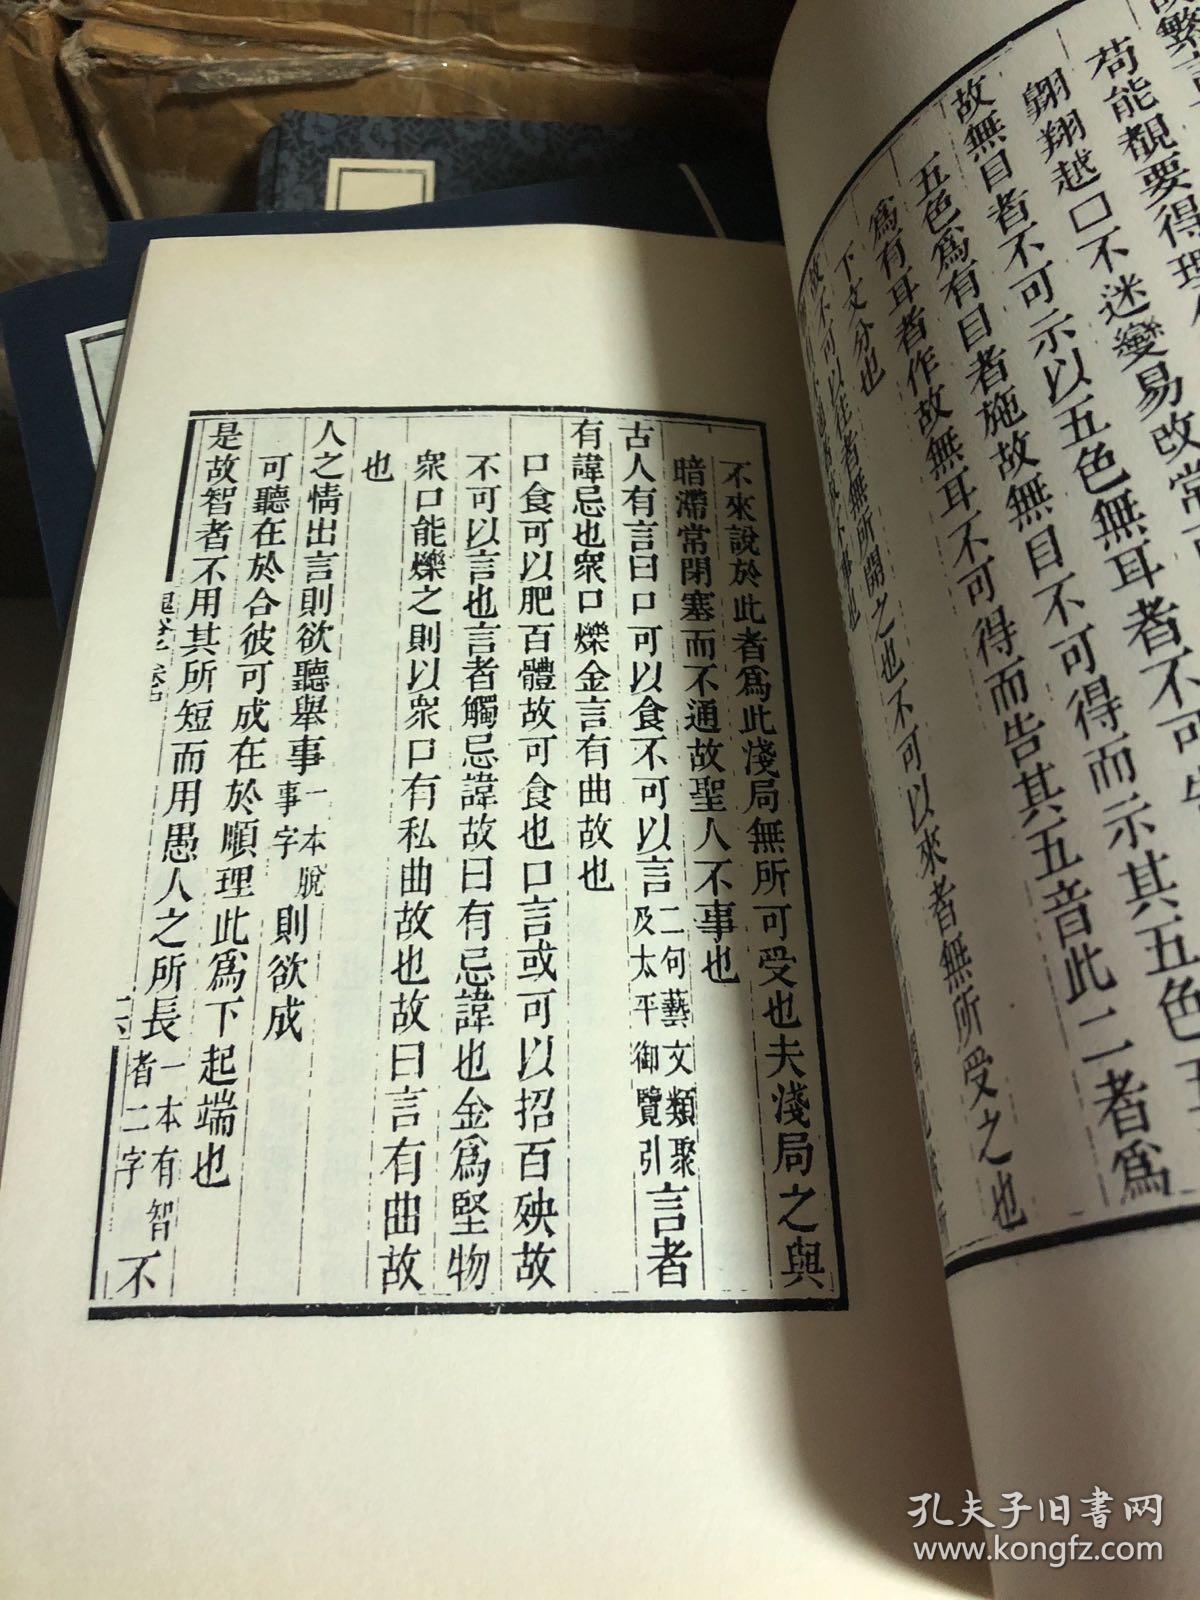 苟能覩要得理
翱翔越口不迷變易改常
故無目者不可示以五色無耳者不可
五色爲有目者施故無目不可得而示其五色
爲有耳者作故無耳不可得而告其五音此二者爲
下文分也
故不可以往者無所開之也不可以來者無所受之也
不來說於此者爲此淺局無所可受也夫淺局之與
暗滯常閉塞而不通故聖人不事也
古人有言曰口可以食不可以言二句藝文類聚及太平御覽引言者
有諱忌也衆口爍金言有曲故也
口食可以肥百體故可食也口言或可以招百殃故
不可以言也言者觸忌諱故曰有忌諱也金爲堅物
衆口能爍之則以衆口有私曲故也故曰言有曲故
也
人之情出言則欲聽舉事一本脫事字則欲成
可聽在於合彼可成在於順理此爲下起端也
是故智者不用其所短而用愚人之所長一本有智者二字不
孔夫子旧书网
www.kongfz.com